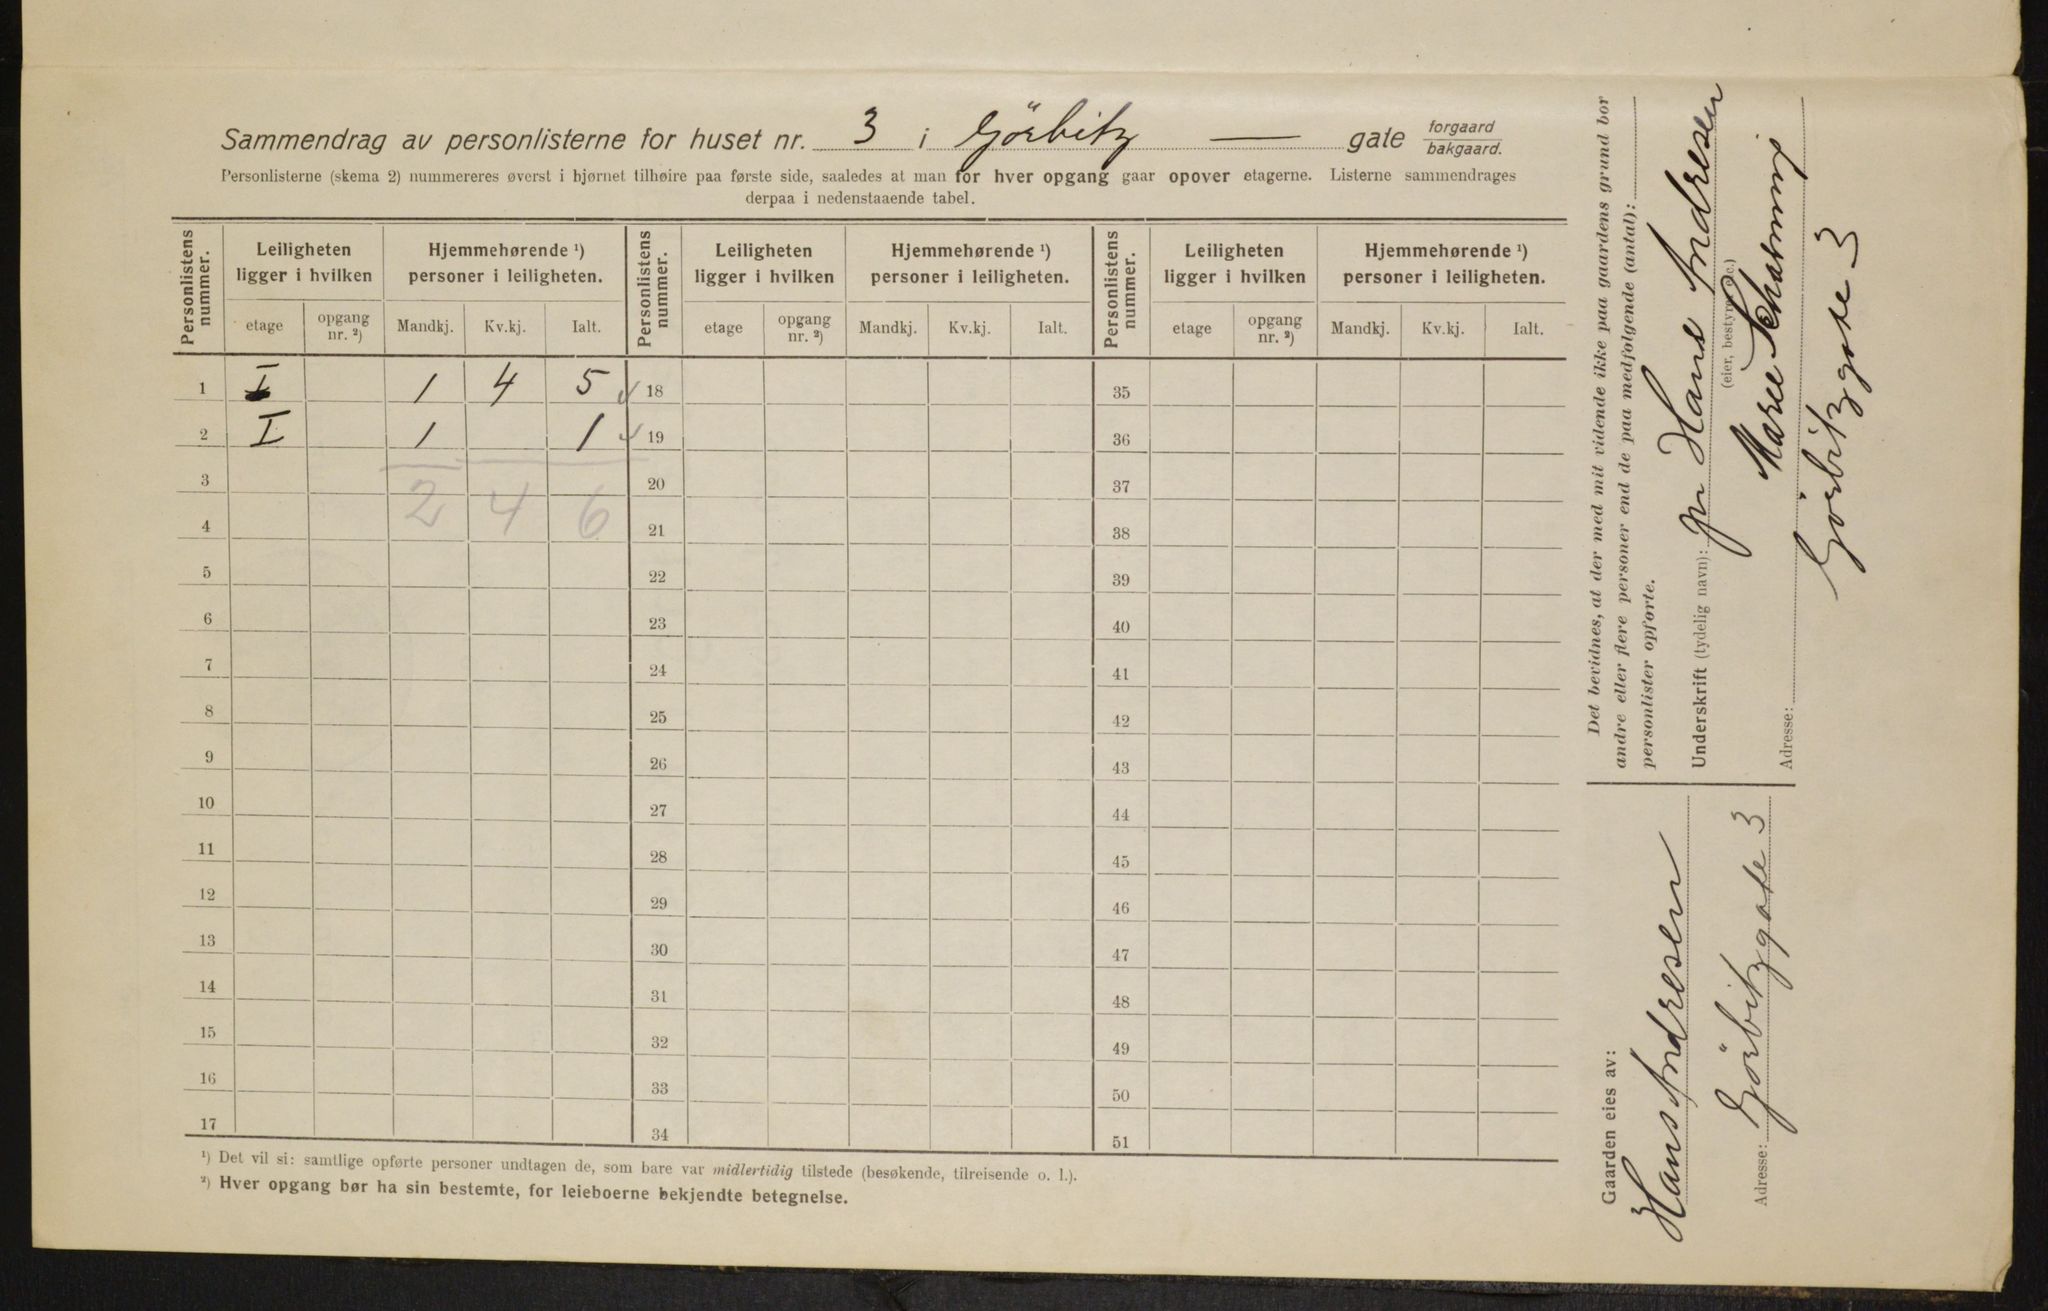 Sammendrag av personlisterne for huset nr. 3 i Görbitz — gate forgaard bakgaard.
Personlisterne (skema 2) nummereres øverst i hjørnet tilhøire paa første side, saaledes at man for hver opgang gaar opover etagerne. Listerne sammendrages
derpaa i nedenstaaende tabel.
Personlistens nummer. Leiligheten ligger i hvilken Hjemmehørende ¹) personer i leiligheten. Personlistens nummer. Leiligheten ligger i hvilken Hjemmehørende ¹) personer i leiligheten. Personlistens nummer. Leiligheten ligger i hvilken Hjemmehørende ¹) personer i leiligheten.
etage opgang nr. ²) Mandkj. Kv.kj. Ialt. etage opgang nr. ²) Mandkj. Kv.kj. Ialt. etage opgang nr. ²) Mandkj. Kv.kj. Ialt.
1 I 1 4 5 18 35
2 I 1 1 19 36
3 20 37
2 4 6
4 21 38
5 22 39
6 23 40
7 24 41
8 25 42
9 26 43
10 27 44
11 28 45
12 29 46
13 30 47
14 31 48
15 32 49
16 33 50
17 34 51
¹) Det vil si: samtlige opførte personer undtagen de, som bare var midlertidig tilstede (besøkende, tilreisende o. l.).
²) Hver opgang bør ha sin bestemte, for leieboerne bekjendte betegnelse.
Det bevidnes, at der med mit vidende ikke paa gaardens grund bor
andre eller flere personer end de paa medfølgende (antal):
personlister opførte.
Underskrift (tydelig navn): pr Hans Andresen
(eier, bestyrer etc.)
Marie
Adresse: Görbitzgate 3
Gaarden eies av:
Hans Andresen
Adresse: Görbitzgate 3